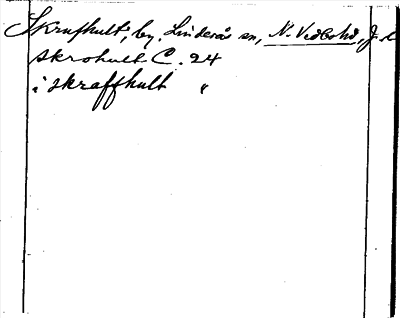 Skrufhult, by, Linderås sn, N. Vedbohd, J. l
skrohult C. 24
i skraffhult "